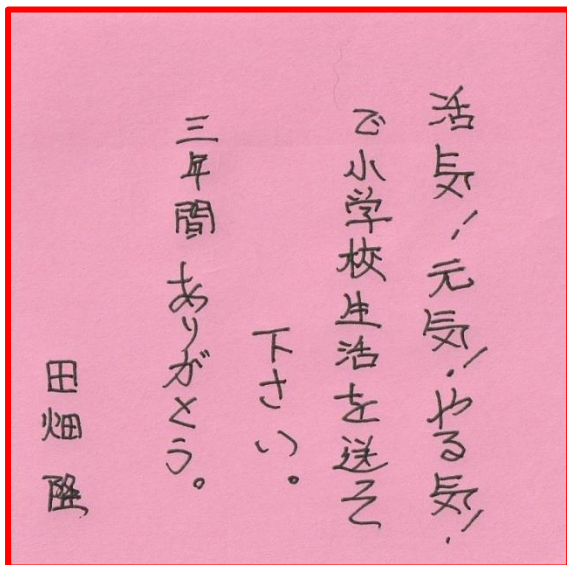 活気!元気!やる気!
で小学校生活を送って
下さい。
三年間 ありがとう。
田畑 隆